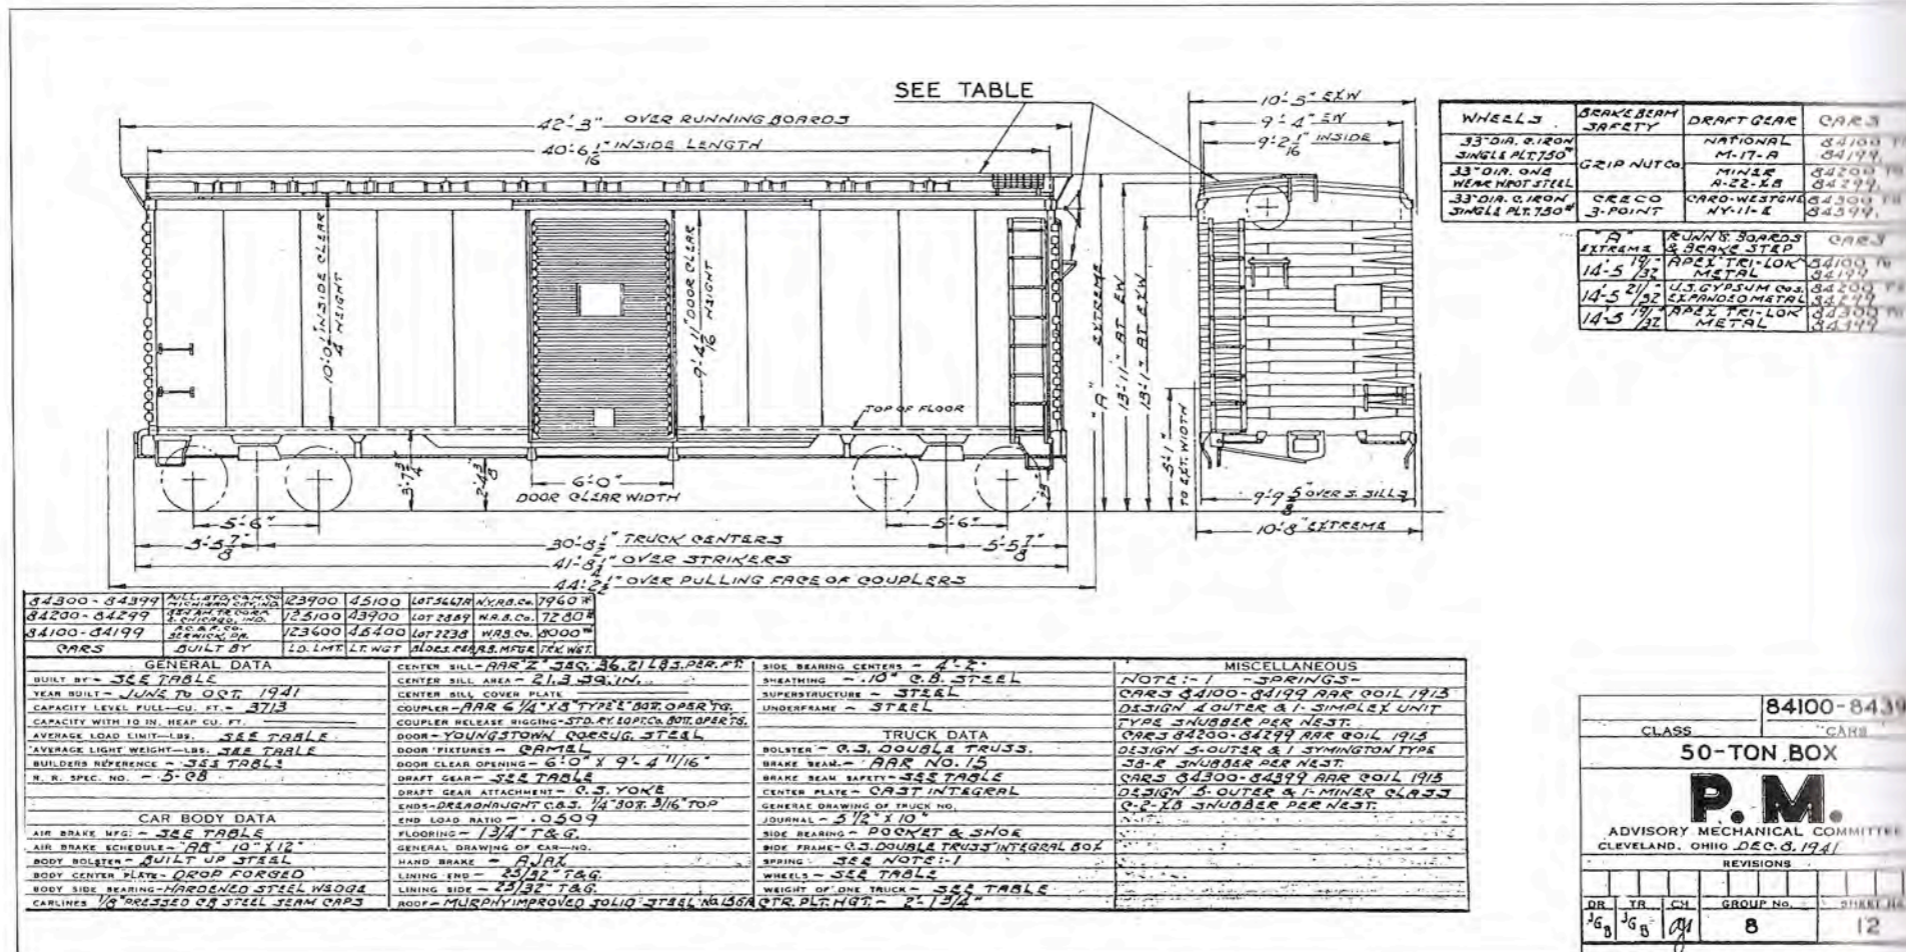 SEE TABLE
42'-3" OVER RUNNING BOARDS
40'-6 1/16" INSIDE LENGTH
10'-0 1/4" INSIDE CLEAR HEIGHT
9'-4 11/16" DOOR CLEAR HEIGHT
TOP OF FLOOR
3'-7 3/4"
2'-4 3/8"
6'-0"
DOOR CLEAR WIDTH
5'-6"
5'-6"
5'-5 7/8"
30'-8 1/2" TRUCK CENTERS
5'-5 7/8"
41'-8 1/4" OVER STRIKERS
44'-2 1/2" OVER PULLING FACE OF COUPLERS
"A" EXTREME
13'-11" AT EW
13'-1" AT EXW
5'-1"
TO EXT. WIDTH
10'-5" EXW
9'-4" EW
9'-2 1/16" INSIDE
9'-9 5/8" OVER S. SILLS
10'-8" EXTREME
WHEELS BRAKE BEAM SAFETY DRAFT GEAR CARS
33" DIA. C. IRON SINGLE PLT. 750# GRIP NUT CO. NATIONAL M-17-A 84100 84199
33" DIA. ONE WEAR WROT STEEL MINER A-22-XB 84200 84299
33" DIA. C. IRON SINGLE PLT. 750# CRECO 3-POINT CARD-WESTGHE NY-11-E 84300 84399
"A" EXTREME RUNN'G. BOARDS & BRAKE STEP CARS
14'-5 19/32" APEX TRI-LOK METAL 84100 84199
14'-5 21/32" U.S. GYPSUM COS. EXPANDED METAL 84200 84299
14'-5 19/32" APEX TRI-LOK METAL 84300 84399
84300-84399 PULL. STD. CAR M. CO. MICHIGAN CITY, IND. 123900 45100 LOT 5667A N.Y.A.B. Co. 7960#
84200-84299 E. CHICAGO, IND. 125100 43900 LOT 2889 W.A.B. Co. 7280#
84100-84199 A.C. & F. CO. BERWICK, PA. 123600 45400 LOT 2238 W.A.B. Co. 8000#
CARS BUILT BY LD. LMT. LT. WGT BLDRS. REF. A.B. MFGR TRK. WGT.
GENERAL DATA
BUILT BY - SEE TABLE
YEAR BUILT - JUNE TO OCT. 1941
CAPACITY LEVEL FULL—CU. FT. - 3713
CAPACITY WITH 10 IN. HEAP CU. FT.
AVERAGE LOAD LIMIT—LBS. SEE TABLE
AVERAGE LIGHT WEIGHT—LBS. SEE TABLE
BUILDERS REFERENCE - SEE TABLE
R. R. SPEC. NO. - 5-CB
CAR BODY DATA
AIR BRAKE MFG: - SEE TABLE
AIR BRAKE SCHEDULE - "AB" 10" X 12"
BODY BOLSTER - BUILT UP STEEL
BODY CENTER PLATE - DROP FORGED
BODY SIDE BEARING - HARDENED STEEL WEDGE
CARLINES 1/8" PRESSED CB STEEL SEAM CAPS
CENTER SILL - AAR "Z" SEC. 36.21 LBS. PER. FT.
CENTER SILL AREA - 21.3 SQ. IN.
CENTER SILL COVER PLATE
COUPLER - AAR 6 1/4" X 8" TYPE "E" BOT. OPER'TG.
COUPLER RELEASE RIGGING - STD. RY. EQPT. Co. BOT. OPER'TG.
DOOR - YOUNGSTOWN CORRUG. STEEL
DOOR FIXTURES - CAMEL
DOOR CLEAR OPENING - 6'-0" X 9'-4 11/16"
DRAFT GEAR - SEE TABLE
DRAFT GEAR ATTACHMENT - C.S. YOKE
ENDS - DREADNAUGHT C.B.S. 1/4" BOT. 3/16" TOP
END LOAD RATIO - .0509
FLOORING - 1 3/4" T & G.
GENERAL DRAWING OF CAR—NO.
HAND BRAKE - AJAX
LINING END - 25/32" T & G.
LINING SIDE - 25/32" T & G.
ROOF - MURPHY IMPROVED SOLID STEEL NO. 156A
SIDE BEARING CENTERS - 4'-2"
SHEATHING - .10" C.B. STEEL
SUPERSTRUCTURE - STEEL
UNDERFRAME - STEEL
TRUCK DATA
BOLSTER - C.S. DOUBLE TRUSS.
BRAKE BEAM - AAR NO. 15
BRAKE BEAM SAFETY - SEE TABLE
CENTER PLATE - CAST INTEGRAL
GENERAL DRAWING OF TRUCK NO.
JOURNAL - 5 1/2" X 10"
SIDE BEARING - POCKET & SHOE
SIDE FRAME - C.S. DOUBLE TRUSS INTEGRAL BOX
SPRING - SEE NOTE:-1
WHEELS - SEE TABLE
WEIGHT OF ONE TRUCK - SEE TABLE
CTR. PLT. HGT. - 2'-1 3/4"
MISCELLANEOUS
NOTE:- 1 -SPRINGS-
CARS 84100-84199 AAR COIL 1915
DESIGN 4 OUTER & 1-SIMPLEX UNIT
TYPE SNUBBER PER NEST.
CARS 84200-84299 AAR COIL 1915
DESIGN 5-OUTER & 1 SYMINGTON TYPE
SB-R SNUBBER PER NEST.
CARS 84300-84399 AAR COIL 1915
DESIGN 5-OUTER & 1-MINER CLASS
C-2-XB SNUBBER PER NEST.
84100-8439
CLASS CARS
50-TON BOX
P. M.
ADVISORY MECHANICAL COMMITTEE
CLEVELAND, OHIO DEC. 8, 1941
REVISIONS
DR TR CH GROUP No. SHEET
JGB JGB 8 12